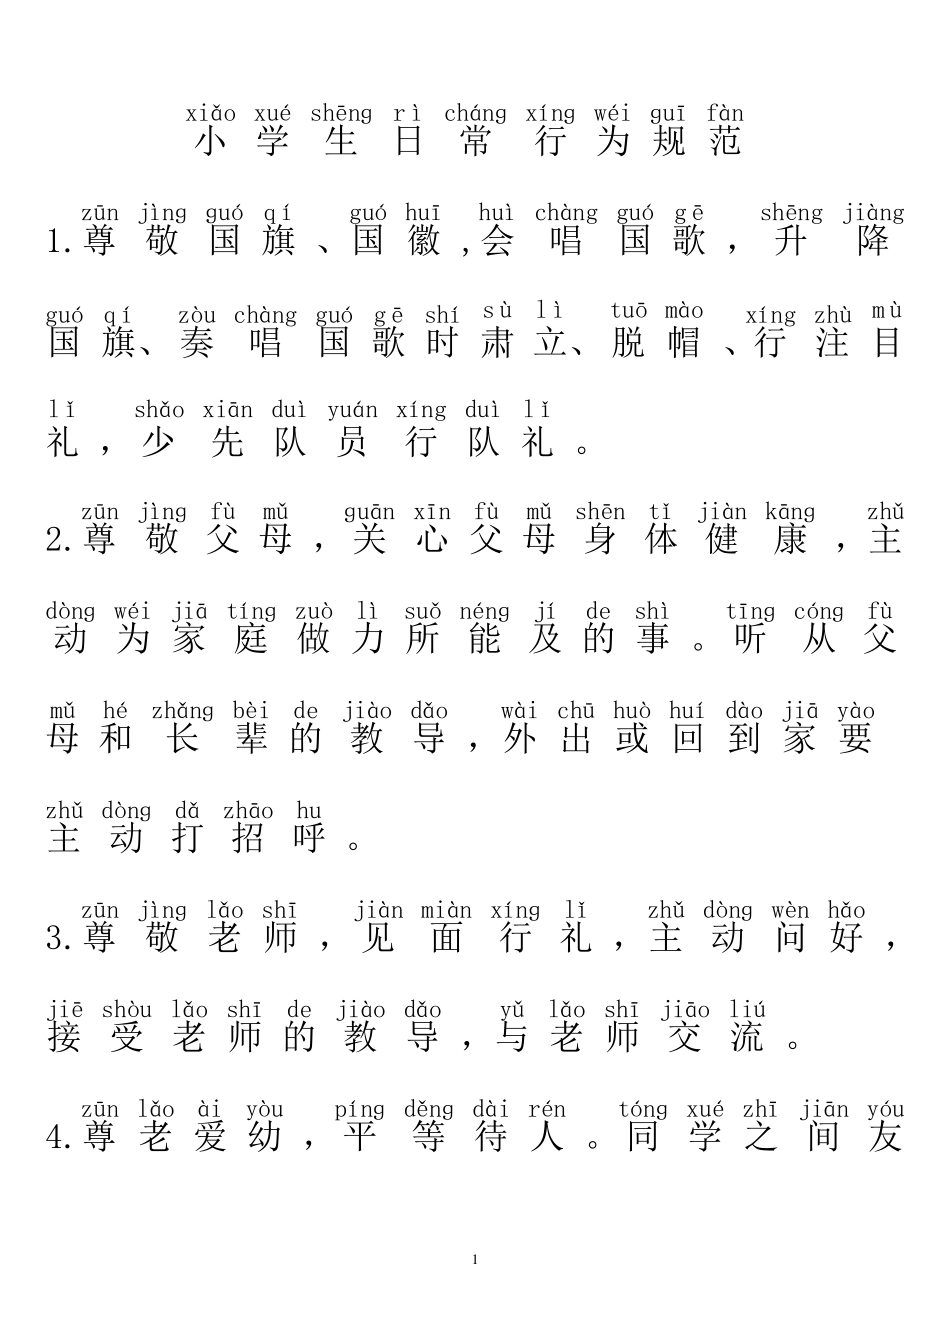 xiǎo xué shēng rì cháng xíng wéi guī fàn
小学生日常行为规范
zūn jìng guó qí guó huī huì chàng guó gē shēng jiàng
1.尊敬国旗、国徽,会唱国歌，升降
guó qí zòu chàng guó gē shí sù lì tuō mào xíng zhù mù
国旗、奏唱国歌时肃立、脱帽、行注目
lǐ shǎo xiān duì yuán xíng duì lǐ
礼，少先队员行队礼。
zūn jìng fù mǔ guān xīn fù mǔ shēn tǐ jiàn kāng zhǔ
2.尊敬父母，关心父母身体健康，主
dòng wéi jiā tíng zuò lì suǒ néng jí de shì tīng cóng fù
动为家庭做力所能及的事。听从父
mǔ hé zhǎng bèi de jiào dǎo wài chū huò huí dào jiā yào
母和长辈的教导，外出或回到家要
zhǔ dòng dǎ zhāo hu
主动打招呼。
zūn jìng lǎo shī jiàn miàn xíng lǐ zhǔ dòng wèn hǎo
3.尊敬老师，见面行礼，主动问好，
jiē shòu lǎo shī de jiào dǎo yǔ lǎo shī jiāo liú
接受老师的教导，与老师交流。
zūn lǎo ài yòu píng děng dài rén tóng xué zhī jiān yóu
4.尊老爱幼，平等待人。同学之间友
1